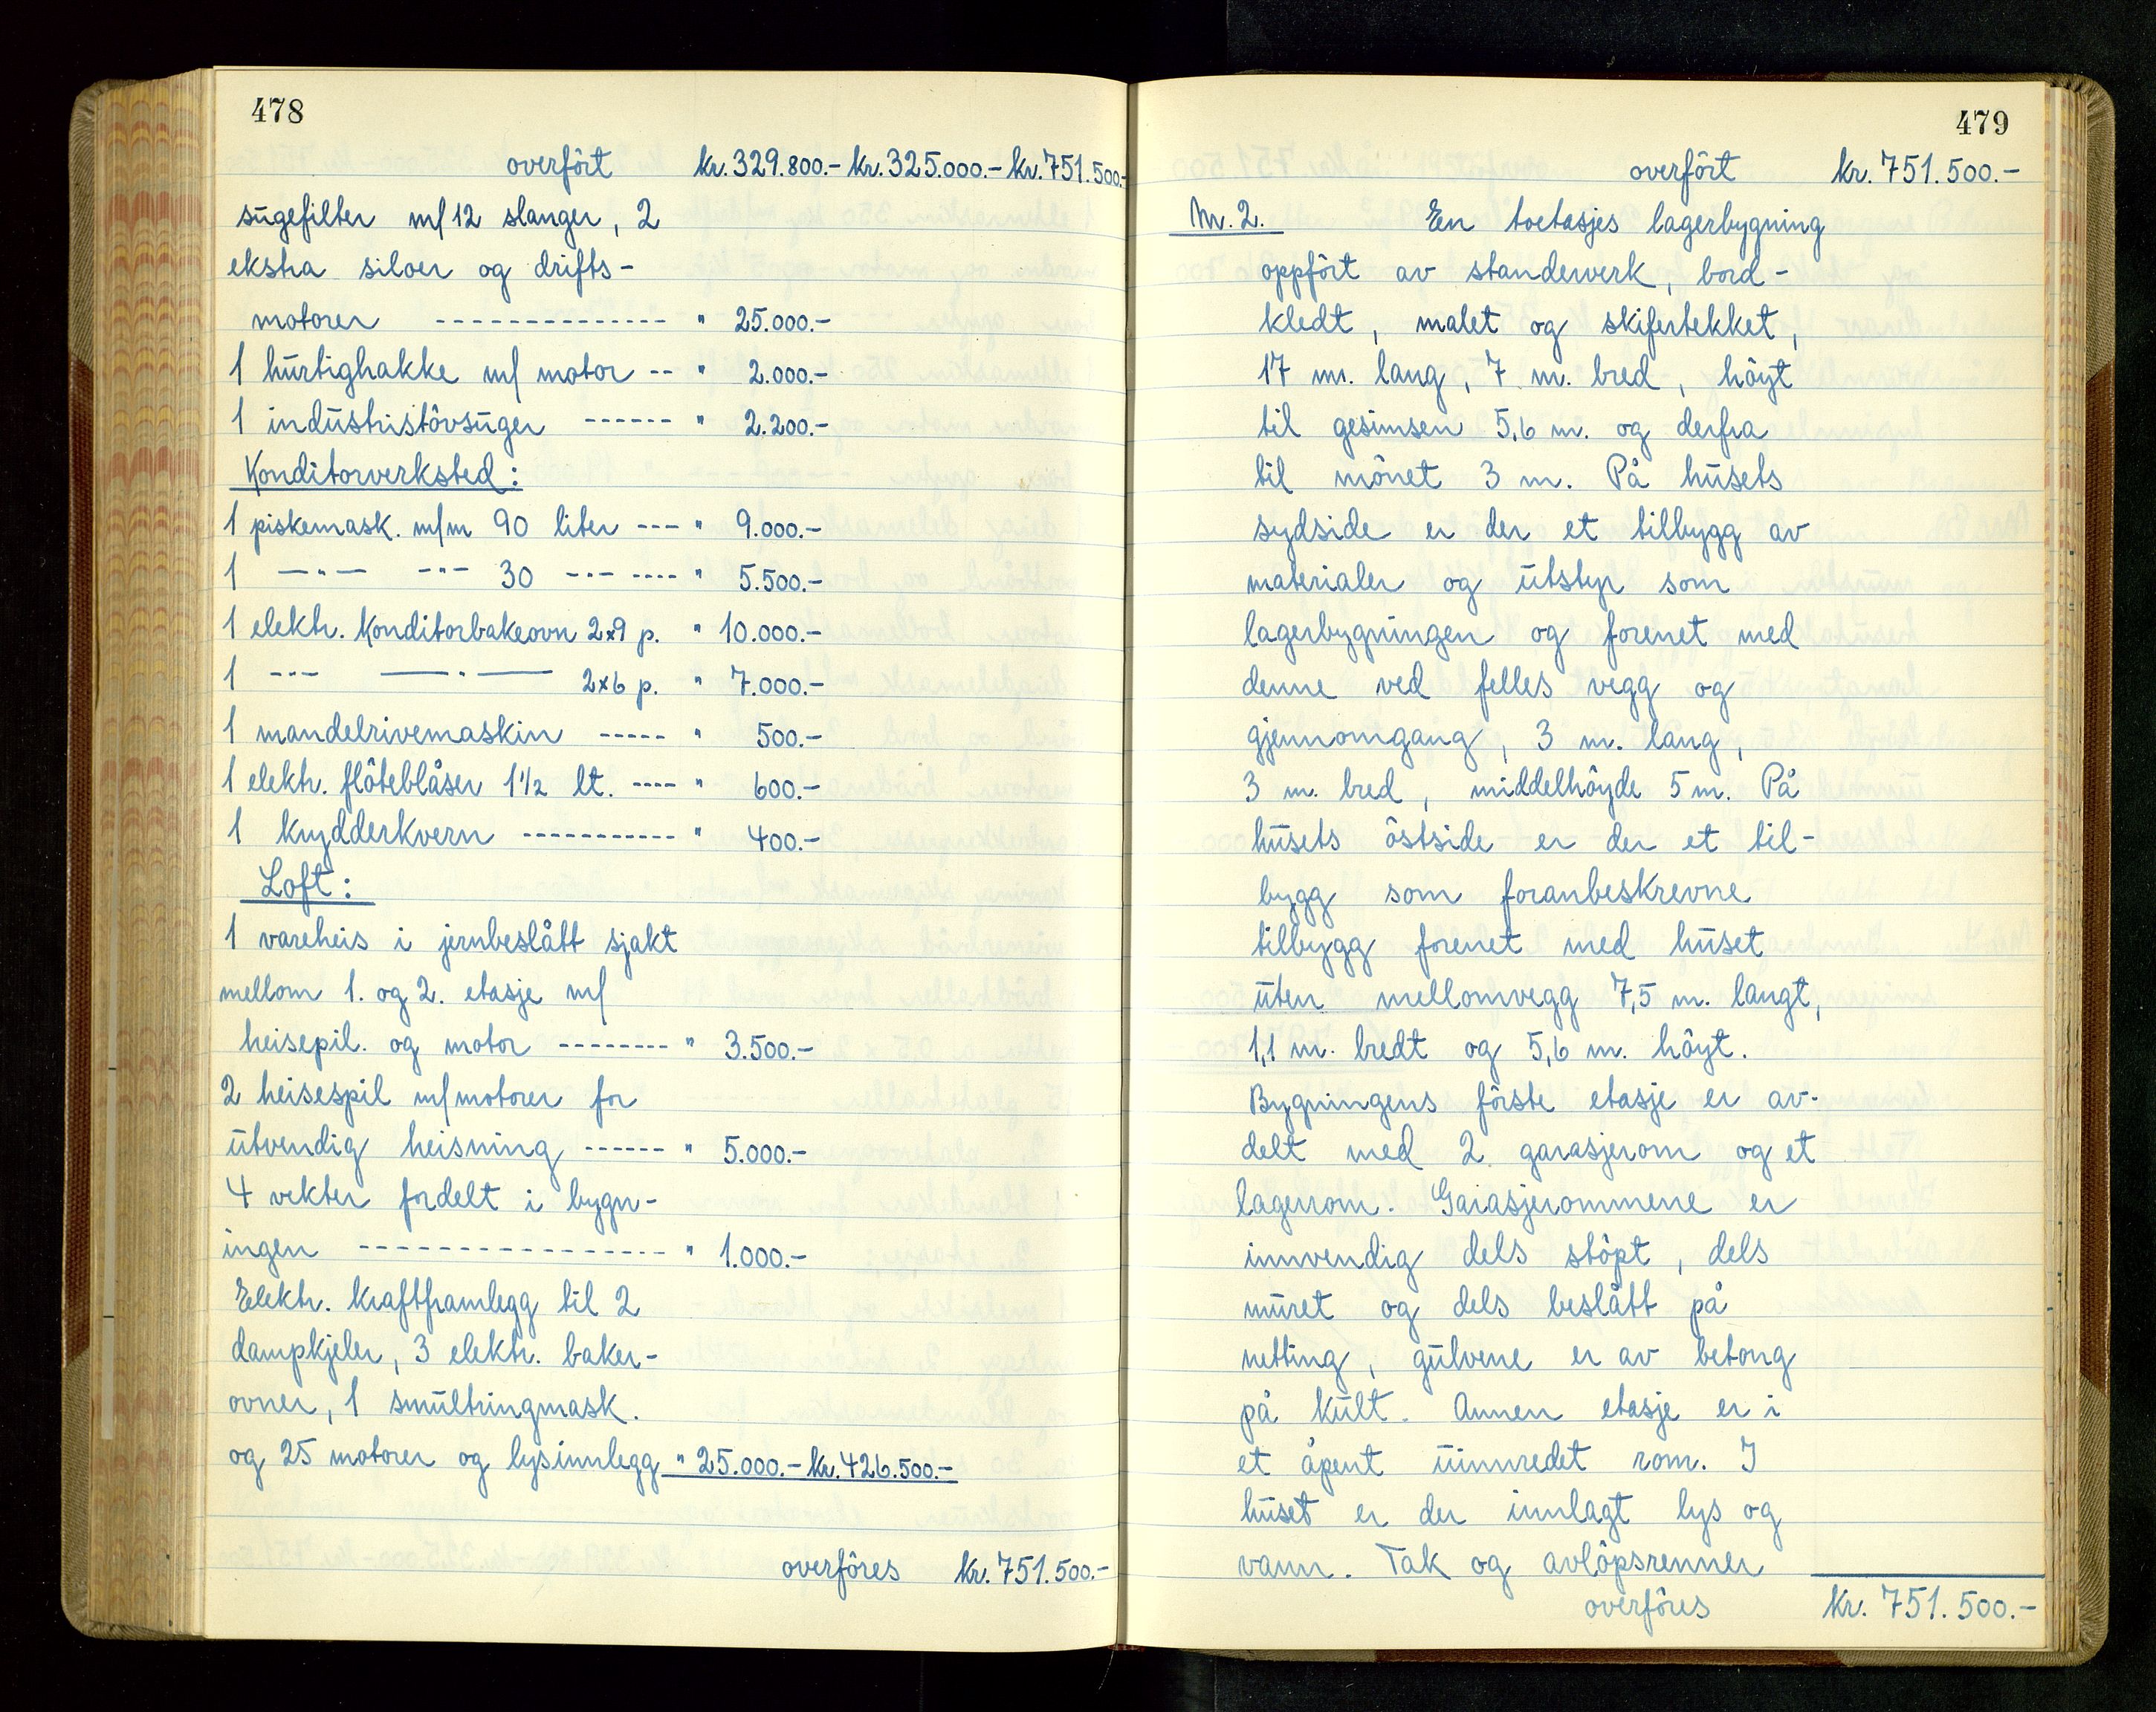 478
overfört kr. 329.800.- kr. 325.000.- kr. 751.500.-
sugefilter m/12 slanger, 2
ekstra siloer og drifts-
motorer -------------- " 25.000.-
1 hurtighakke m/ motor -- " 2.000.-
1 industristövsuger ------ " 2.200.-
Konditorverksted:
1 piskemask. m/m 90 liter --- " 9.000.-
1 —"— -"- 30 -"- ---- " 5.500.-
1 elektr. konditorbakeovn 2x9 p. " 10.000.-
1 -"- —"— 2x6 p. " 7.000.-
1 mandelrivemaskin ----- " 500.-
1 elektr. flöteblåser 1 1/2 lt. ---- " 600.-
1 krydderkvern ----------- " 400.-
Loft:
1 vareheis i jernbeslått sjakt
mellom 1. og 2. etasje m/
heisepil. og motor -------- " 3.500.-
2 heisespil m/motorer for
utvendig heisning ------ " 5.000.-
4 vekter fordelt i bygn-
ingen ----------------- " 1.000.-
Elektr. kraftframlegg til 2
dampkjeler, 3 elektr. baker-
ovner, 1 smultringmask.
og 25 motorer og lysinnlegg " 25.000.- kr. 426.500.-
overföres kr. 751.500.-
479
overfört kr. 751.500.-
Nr. 2. En toetasjes lagerbygning
oppfört av standerverk, bord-
kledt, malet og skifertekket,
17 m. lang, 7 m. bred, höyt
til gesimsen 5,6 m. og derfra
til mönet 3 m. På husets
sydside er der et tilbygg av
materialer og utstyr som
lagerbygningen og forenet med
denne ved felles vegg og
gjennomgang, 3 m. lang,
3 m. bred, middelhöyde 5 m. På
husets östside er der et til-
bygg som foranbeskrevne
tilbygg forenet med huset
uten mellomvegg 7,5 m. langt,
1,1 m. bredt og 5,6 m. höyt.
Bygningens förste etasje er av-
delt med 2 garasjerom og et
lagerrom. Garasjerommene er
innvendig dels stöpt, dels
muret og dels beslått på
netting, gulvene er av betong
på kult. Annen etasje er i
et åpent uinnredet rom. I
huset er der innlagt lys og
vann. Tak og avlöpsrenner
overföres kr. 751.500.-